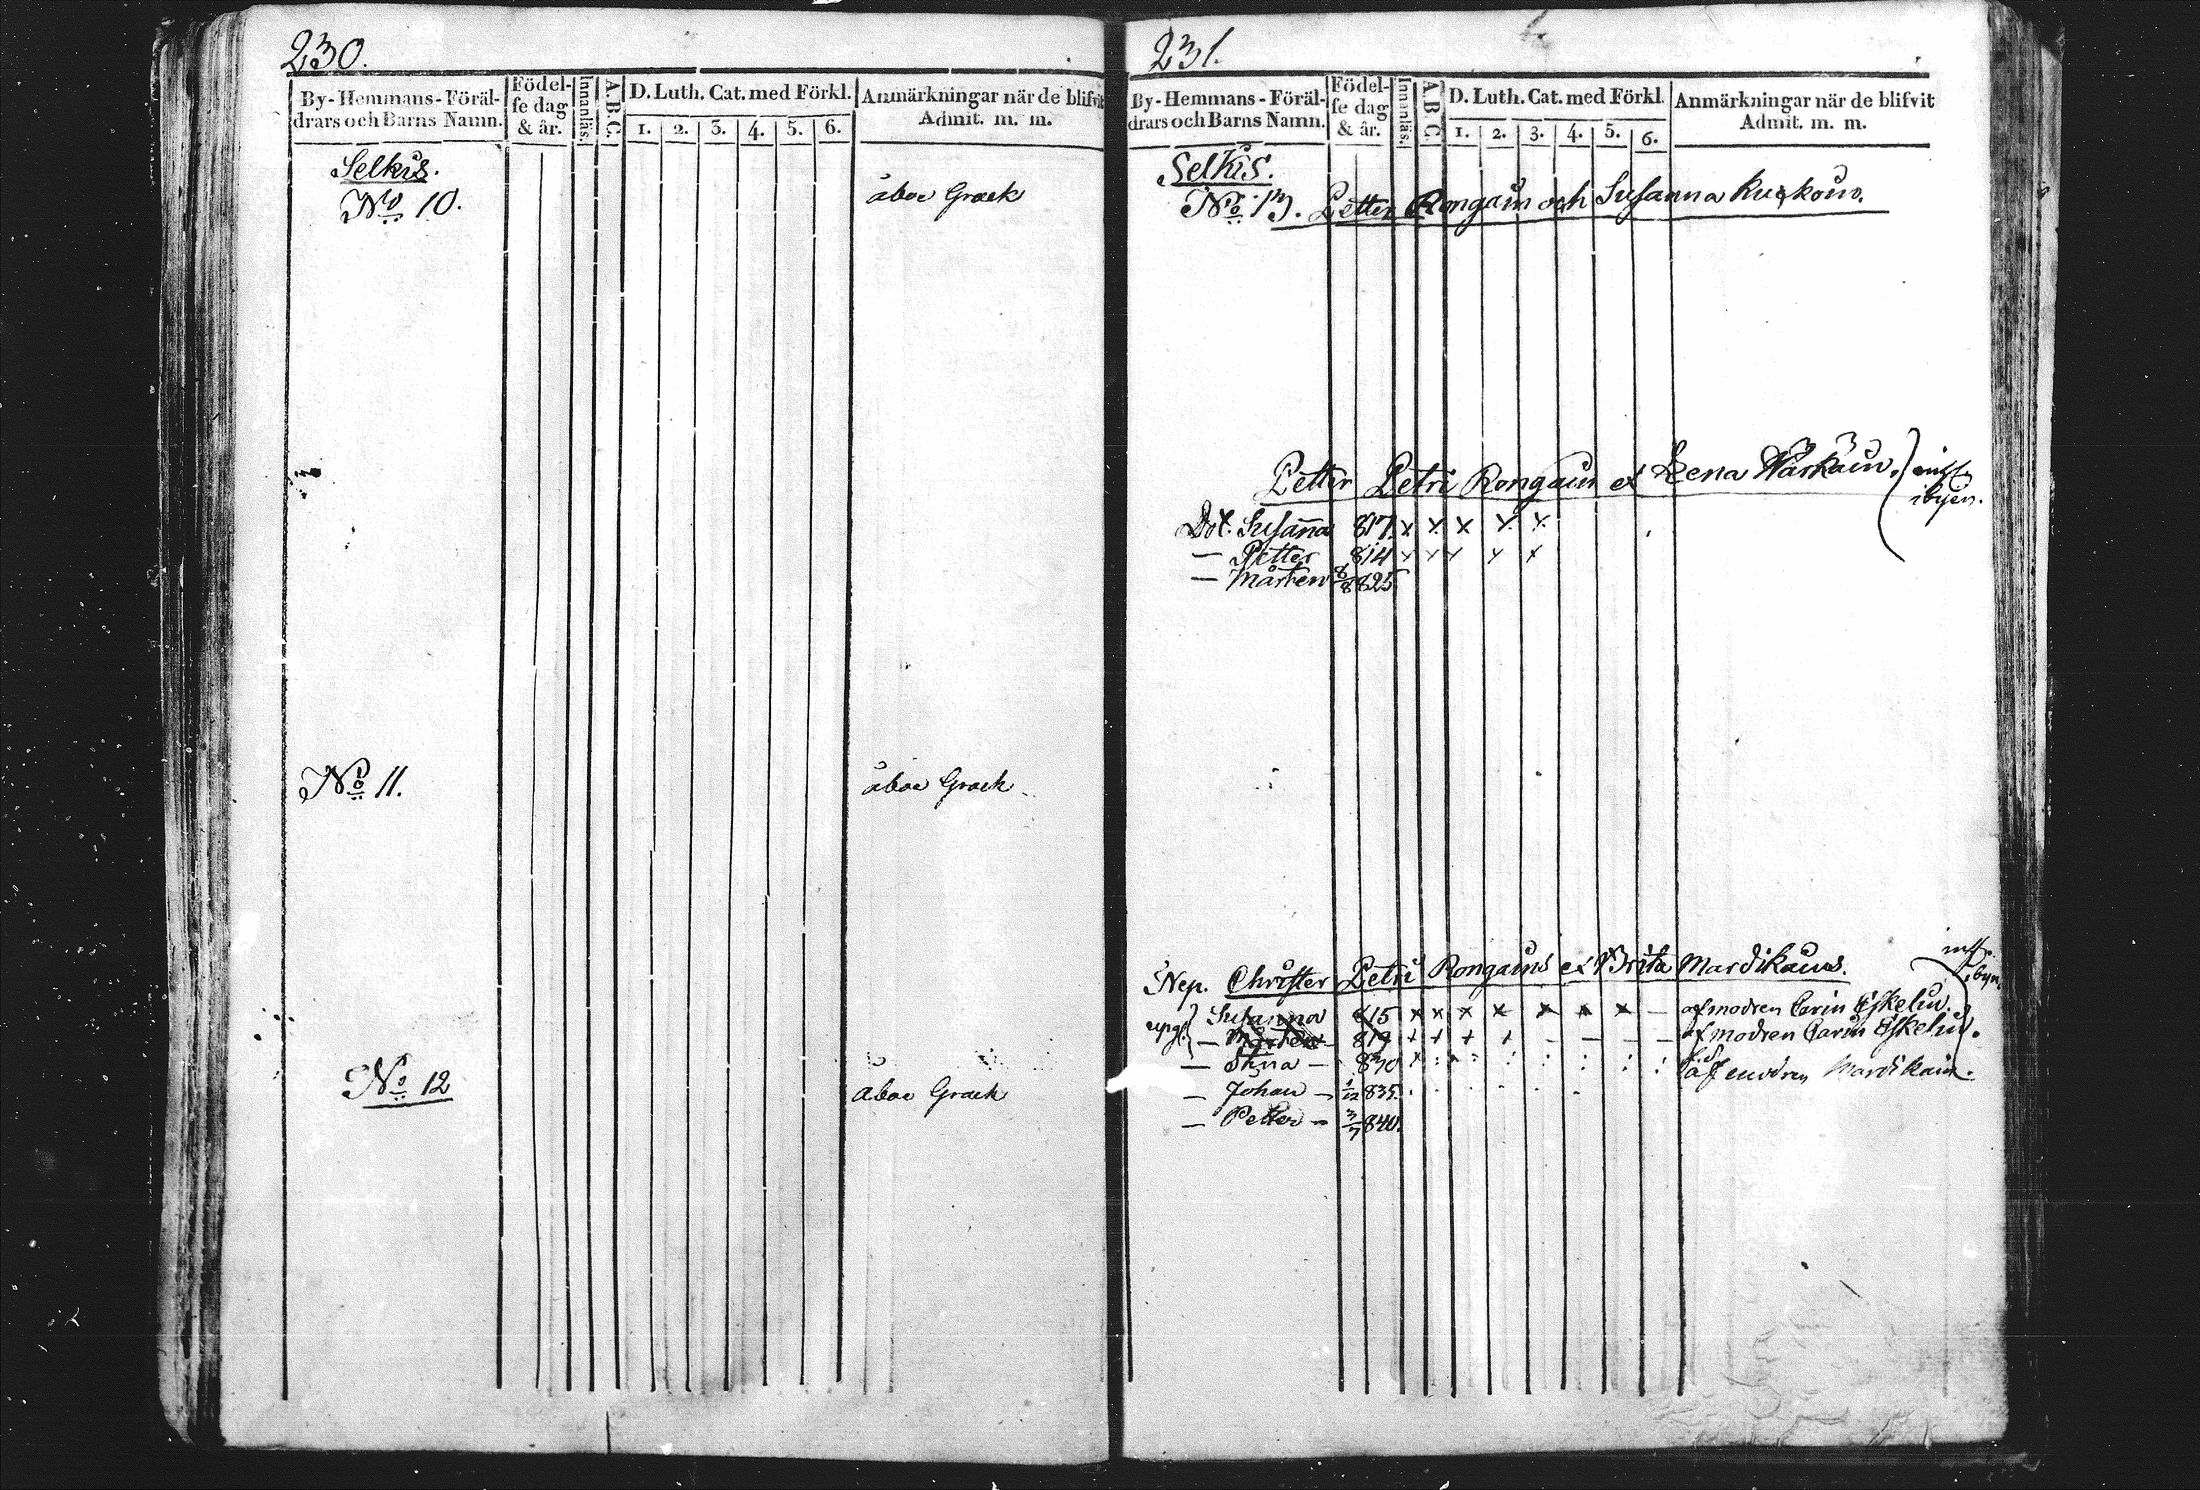 230.
By-Hemmans-Föräl-
drars och Barns Namn.
Födel-
se dag
& år.
Innanläs.
A.B.C.
D. Luth. Cat. med Förkl.
1. 2. 3. 4. 5. 6.
Anmärkningar när de blifvit
Admit. m. m.
Selkis.
No 10. åboe Graek
No 11. åboe Graek
No 12 aboe Graek
231.
By-Hemmans-Föräl-
drars och Barns Namn.
Födel-
se dag
& år.
Innanläs.
A B C.
D. Luth. Cat. med Förkl.
1. 2. 3. 4. 5. 6.
Anmärkningar när de blifvit
Admit. m. m.
Selkis.
No 13. Petter Rongain och Susanna
Petter Petri Rongain et Lena
ibyen.
Dot. Susanna 817. x x x x x
— Petter 814 x x x x x
— Mårten 8/8 825
Nep. Christer Petri Rongains et Brita Mardikain.
ibyn
Susanna 815 x x x x x x x — af modren Carin Eskelin.
— 819 + + + + — — — — af modren Carin Eskelin.
— Stina — 830 af modren Mardikain.
— Johan — 1/12 835.
— Petter — 3/7 840.